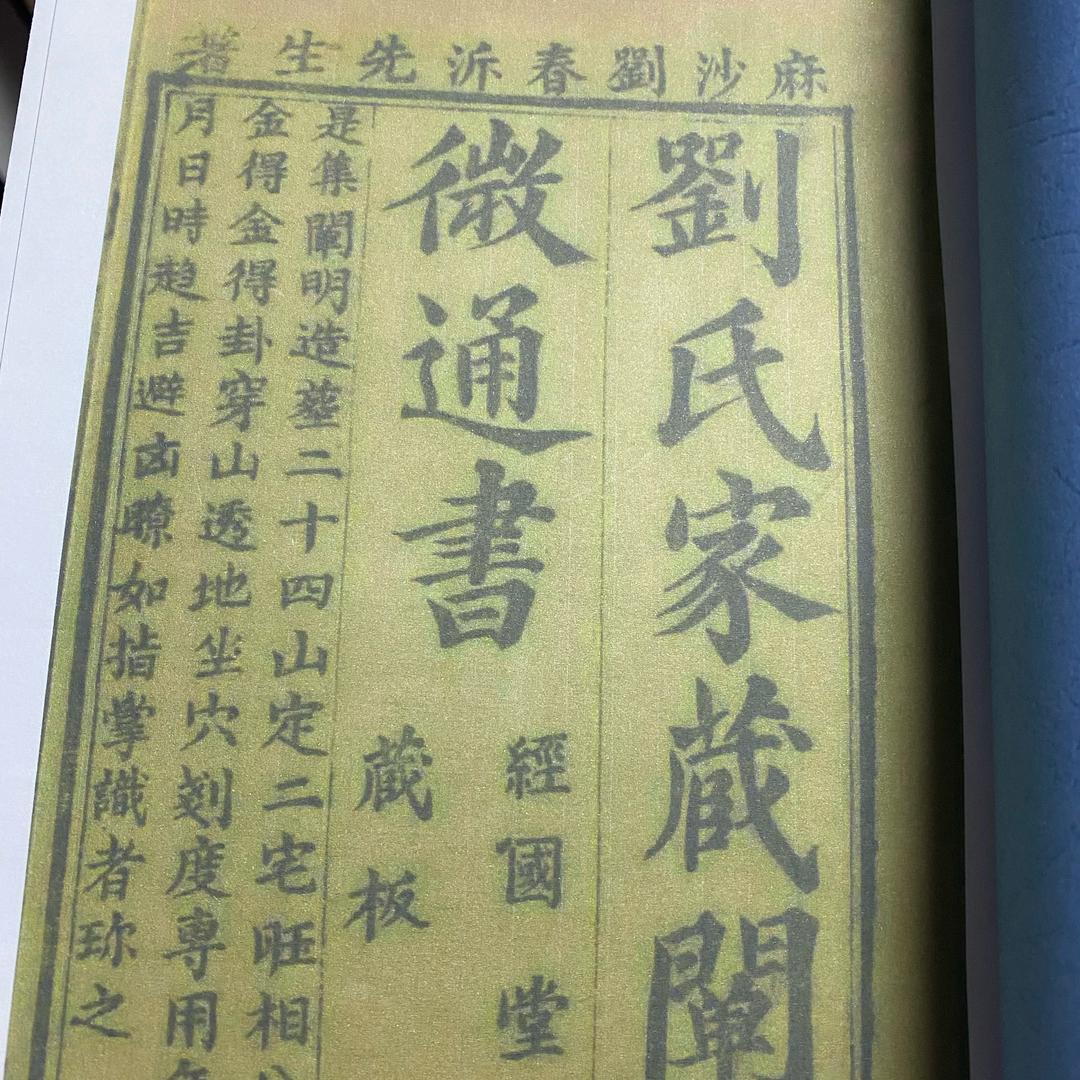 麻沙劉春泝先生著
劉氏家蔵闡
微通書
經國堂
蔵板
是集闡明造塟二十四山定二宅旺相
金得金得卦穿山透地坐穴剡度専用
月日時趋吉避凶瞭如指掌識者珎之